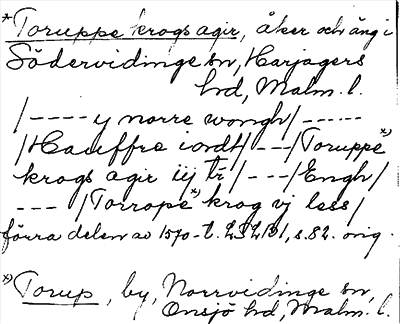 *) Toruppe krogs agir, åker och äng i
Södervidinge sn, Harjagers
hd, Malm. l.
|---- y norre wongh|-----
|Hauffre iordt|---|Toruppe *)
krogs agir iij tr|---|Engh|
--- |Torrope *) krog vj less|
förra delen av 1570-t. s. 82. orig.
*) Torup, by, Norrvidinge sn,
Onsjö hd, Malm. l.